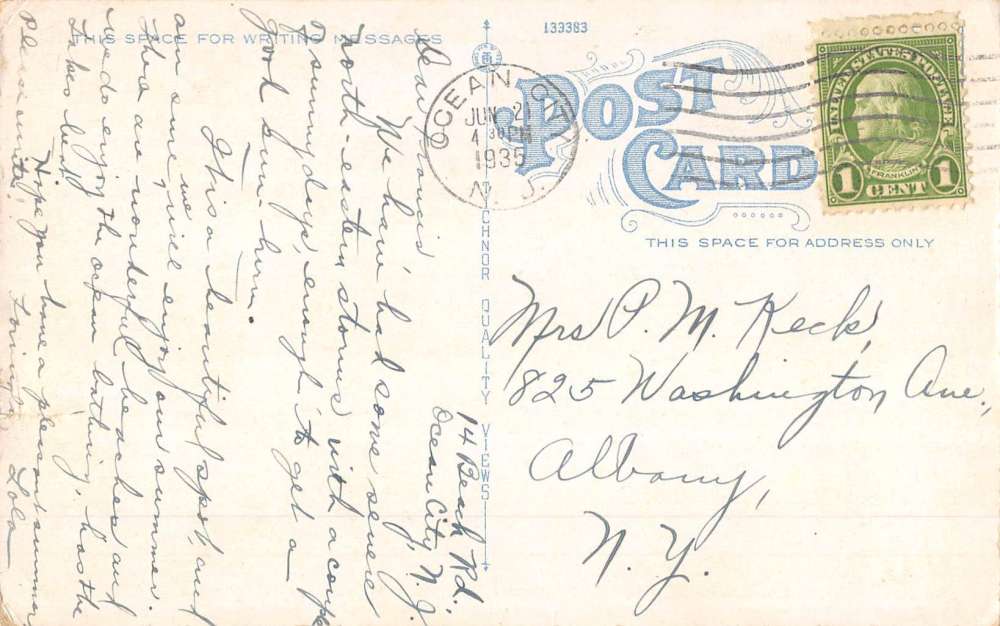 THIS SPACE FOR WRITING MESSAGES
14 Beach Rd.
Ocean City, N.J.
We have had some severe
north-eastern storms with a couple
sunny days, enough to get a
good sun burn.
This a beautiful spot, and
am sure we will enjoy our summer.
The are wonderful beaches and
we do enjoy the ocean bathing, has the
Lakes beat
Hope you have a pleasant summer
Please write,
Loving
Lola
TYCHNOR QUALITY VIEWS
133383
OCEAN CITY
JUN 21
4 30 PM
1935
N. J.
POST CARD
THIS SPACE FOR ADDRESS ONLY
UNITED STATES POSTAGE
FRANKLIN
1 CENT 1
Mrs P. M. Keck,
825 Washington Ave.,
Albany,
N. Y.